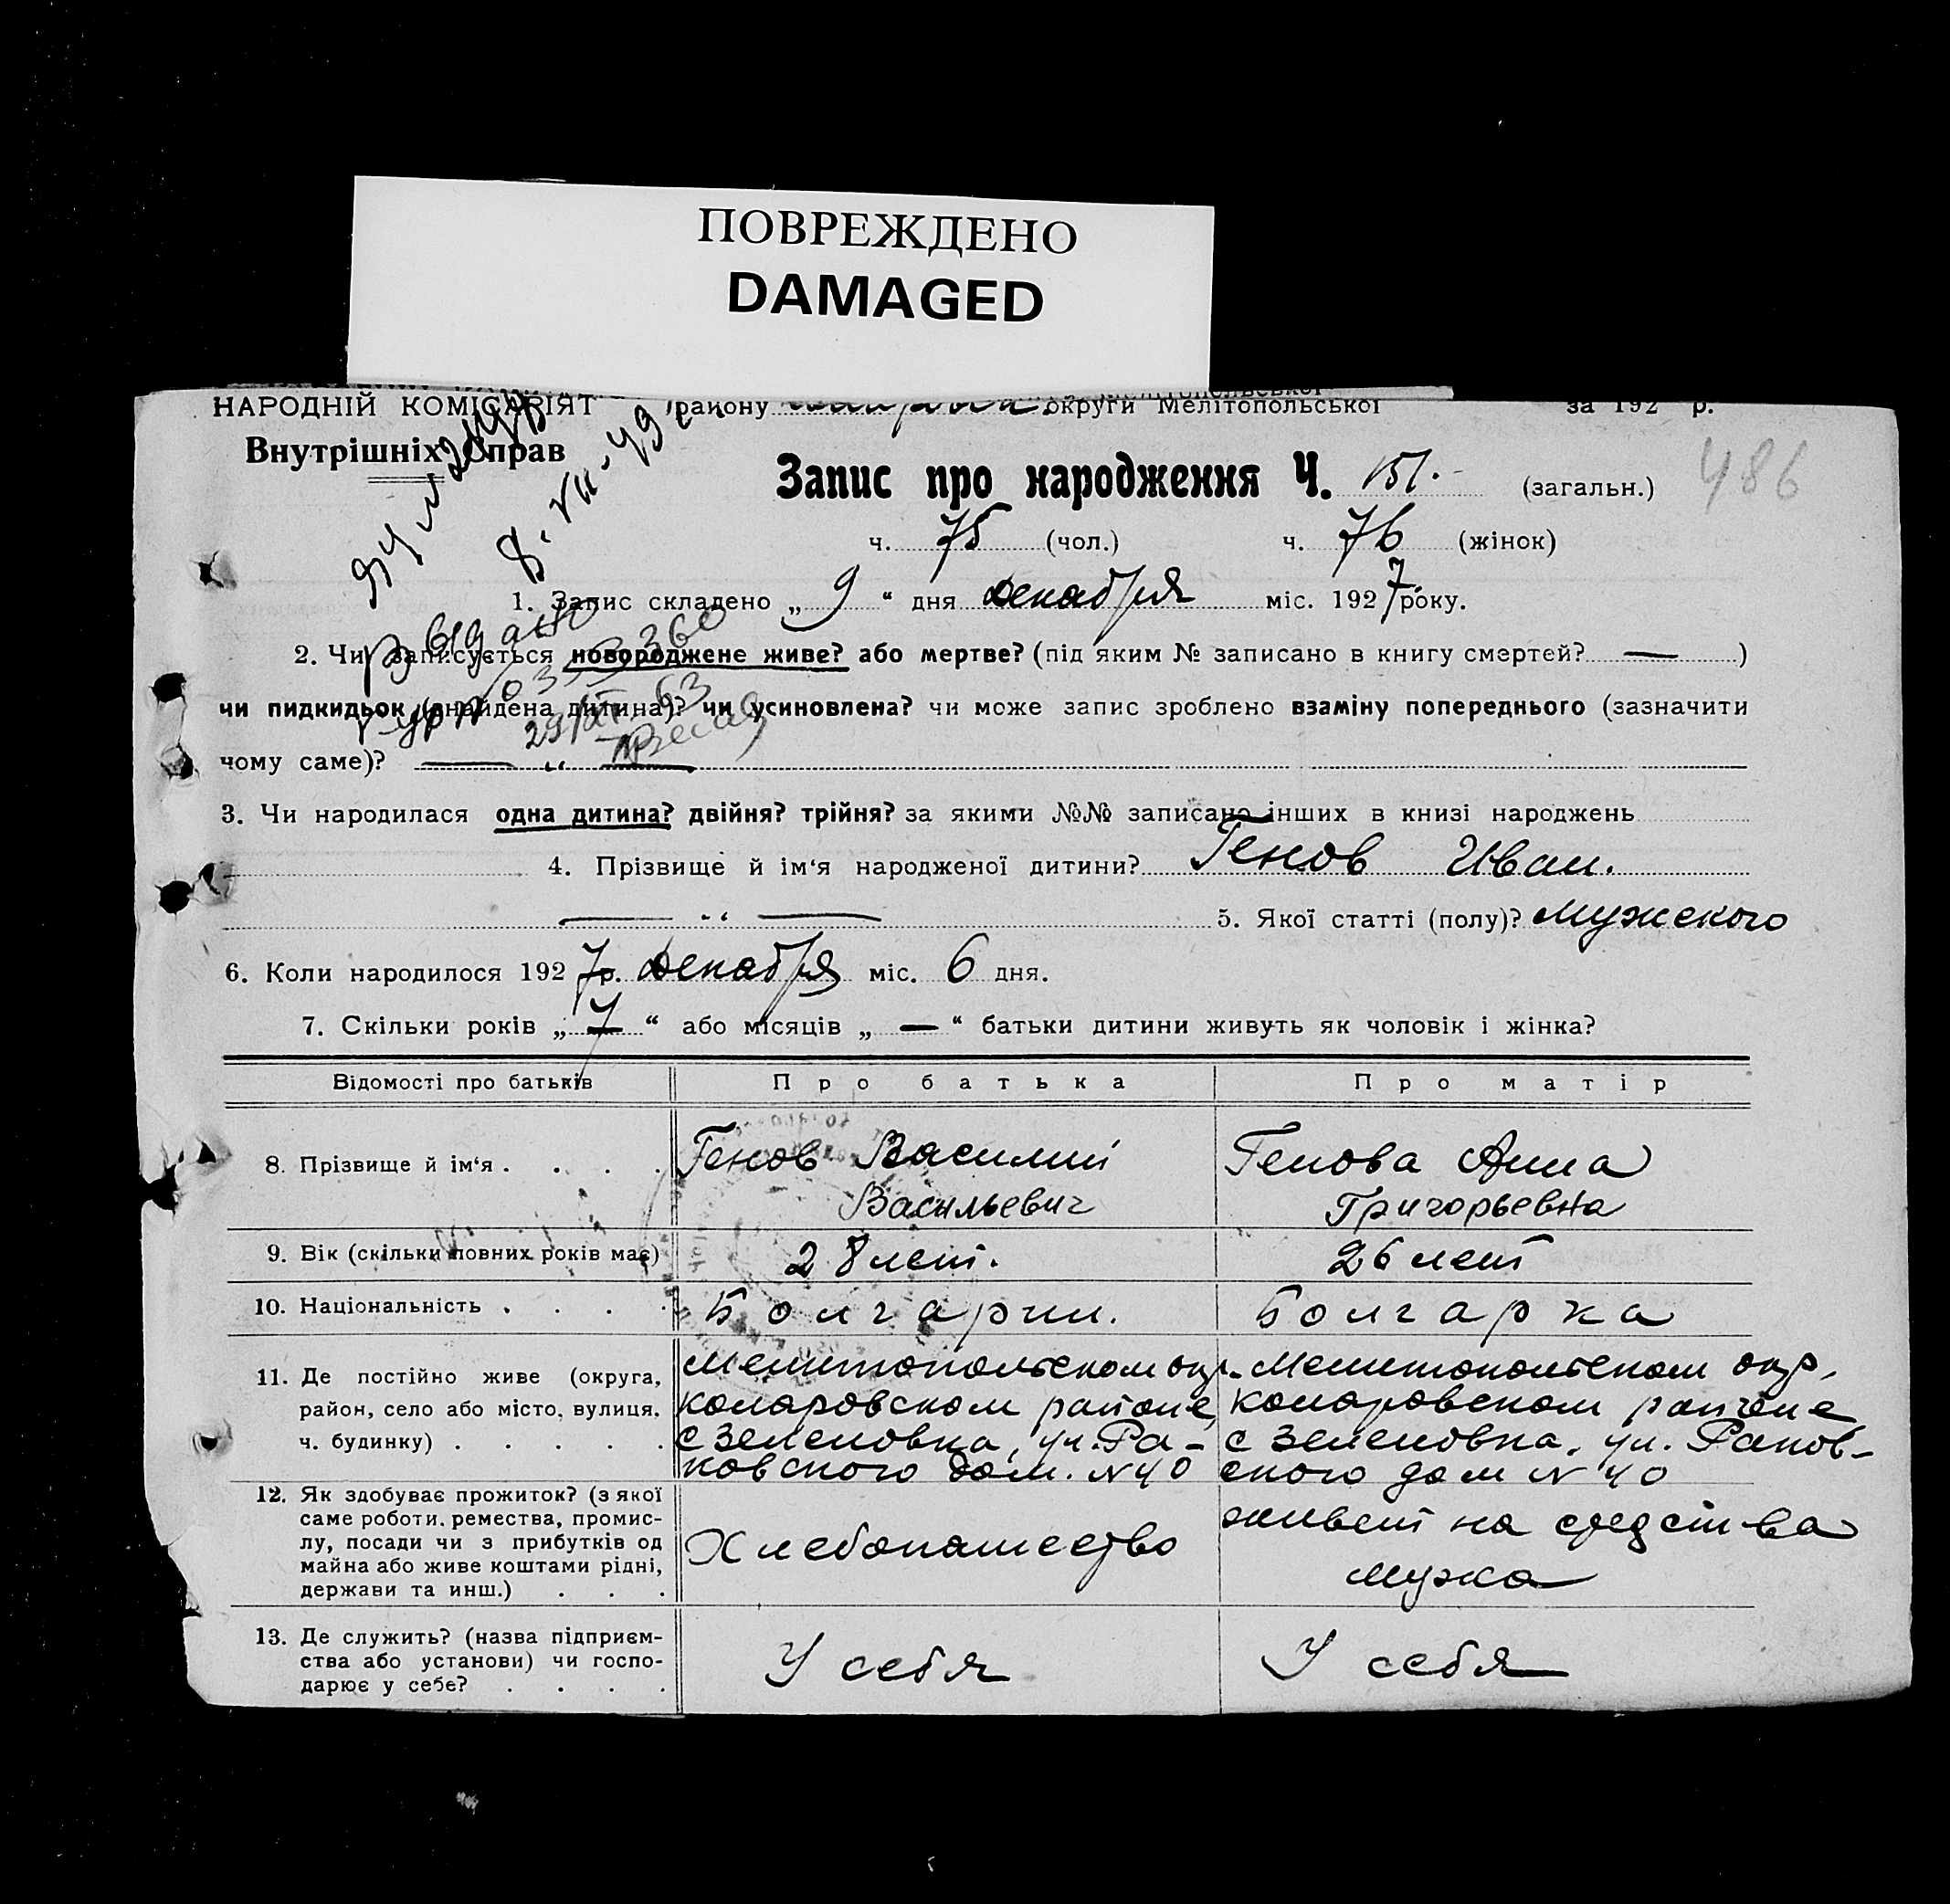 ПОВРЕЖДЕНО
DAMAGED
НАРОДНІЙ КОМІСАРІЯТ району округи Мелітопольської за 192 р.
Внутрішніх Справ
Запис про народження Ч. 151. (загальн.) 486
ч. 75 (чол.) ч. 76 (жінок)
8. VII-49
1. Запис складено „ 9 “ дня декабря міс. 1927 року.
выдано
2. Чи записується новороджене живе? або мертве? (під яким № записано в книгу смертей? — )
чи пидкидьок (знайдена дитина)? чи усиновлена? чи може запис зроблено взаміну попереднього (зазначити
чому саме)? — „ —
3. Чи народилася одна дитина? двійня? трійня? за якими №№ записано інших в книзі народжень
4. Прізвище й ім‘я народженої дитини? Генов Иван.
— „ — 5. Якої статті (полу)? Мужского
6. Коли народилося 1927 р. декабря міс. 6 дня.
7. Скільки років „ 7 “ або місяців „ — “ батьки дитини живуть як чоловік і жінка?
Відомості про батьків Про батька Про матір
8. Прізвище й ім‘я . . . . Генов Василий Генова Анна
Васильевич Григорьевна
9. Вік (скільки повних років має) 28 лет. 26 лет
10. Національність . . . . Болгарин. Болгарка
11. Де постійно живе (округа, Мелитопольском окр. Мелитопольском окр.
район, село або місто, вулиця, Комаровском районе, Комаровском районе
ч. будинку) . . . . . с Зеленовка, ул. Ра- с Зеленовка, ул. Раков-
ковского дом. N 40 ского дом N 40
12. Як здобуває прожиток? (з якої
саме роботи, ремества, промис- живет на средства
лу, посади чи з прибутків од Хлебопашество
майна або живе коштами рідні, мужа
держави та инш.) . . .
13. Де служить? (назва підприєм-
ства або установи) чи госпо- У себя У себя
дарює у себе? . . . .